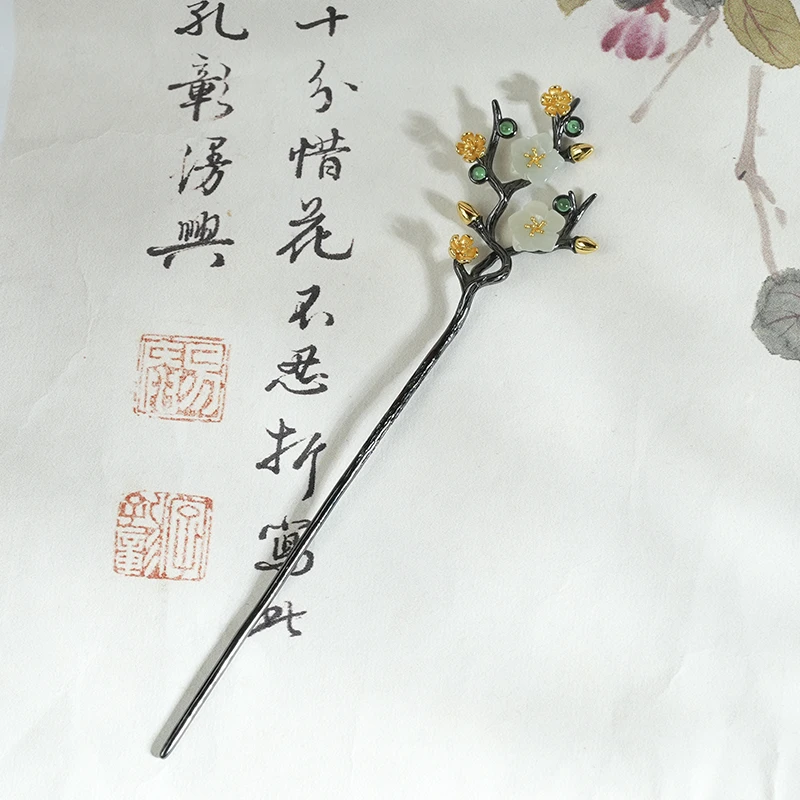 十分惜花不忍折寫此
孔彰漫興